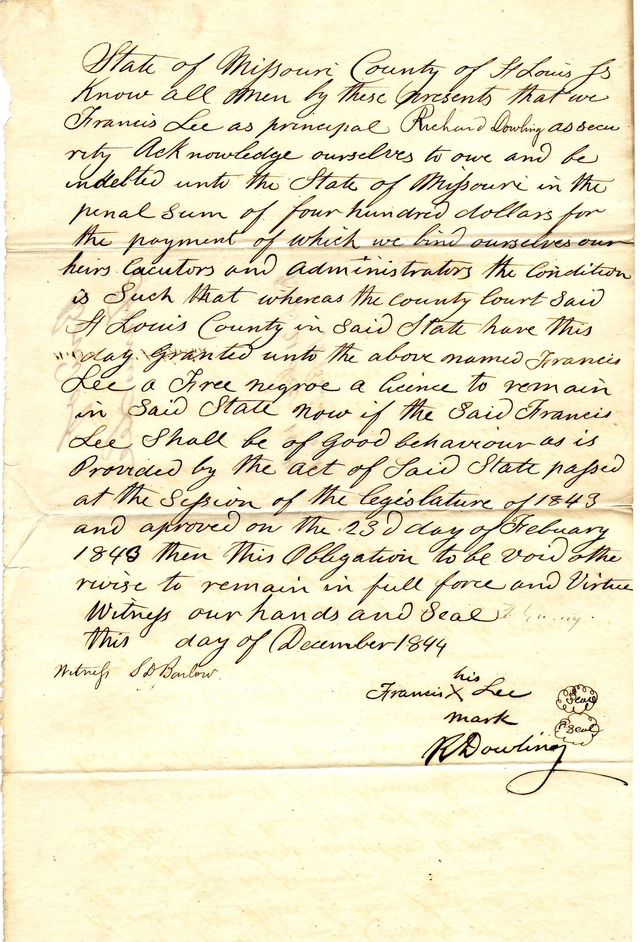 State of Missouri County of St Louis Ss
Know all Men by these presents that we
Francis Lee as principal Richard Dowling as secu
rity Acknowledge ourselves to owe and be
indebted unto the State of Missouri in the
penal sum of four hundred dollars for
the payment of which we bind ourselves our
heirs Executors and Administrators the Condition
is Such that whereas the County Court Said
St Louis County in Said State have this
day Granted unto the above named Francis
Lee a Free negroe a licence to remain
in Said State now if the Said Francis
Lee Shall be of Good behaviour as is
Provided by the act of Said State passed
at the Session of the legislature of 1843
and aproved on the 23d day of Febuary
1843 then this Obligation to be void othe
rwise to remain in full force and Virtue
Witness our hands and Seal
this day of December 1844
Witness S D Barlow
his
Francis X Lee
mark
Seal
Seal
R Dowling